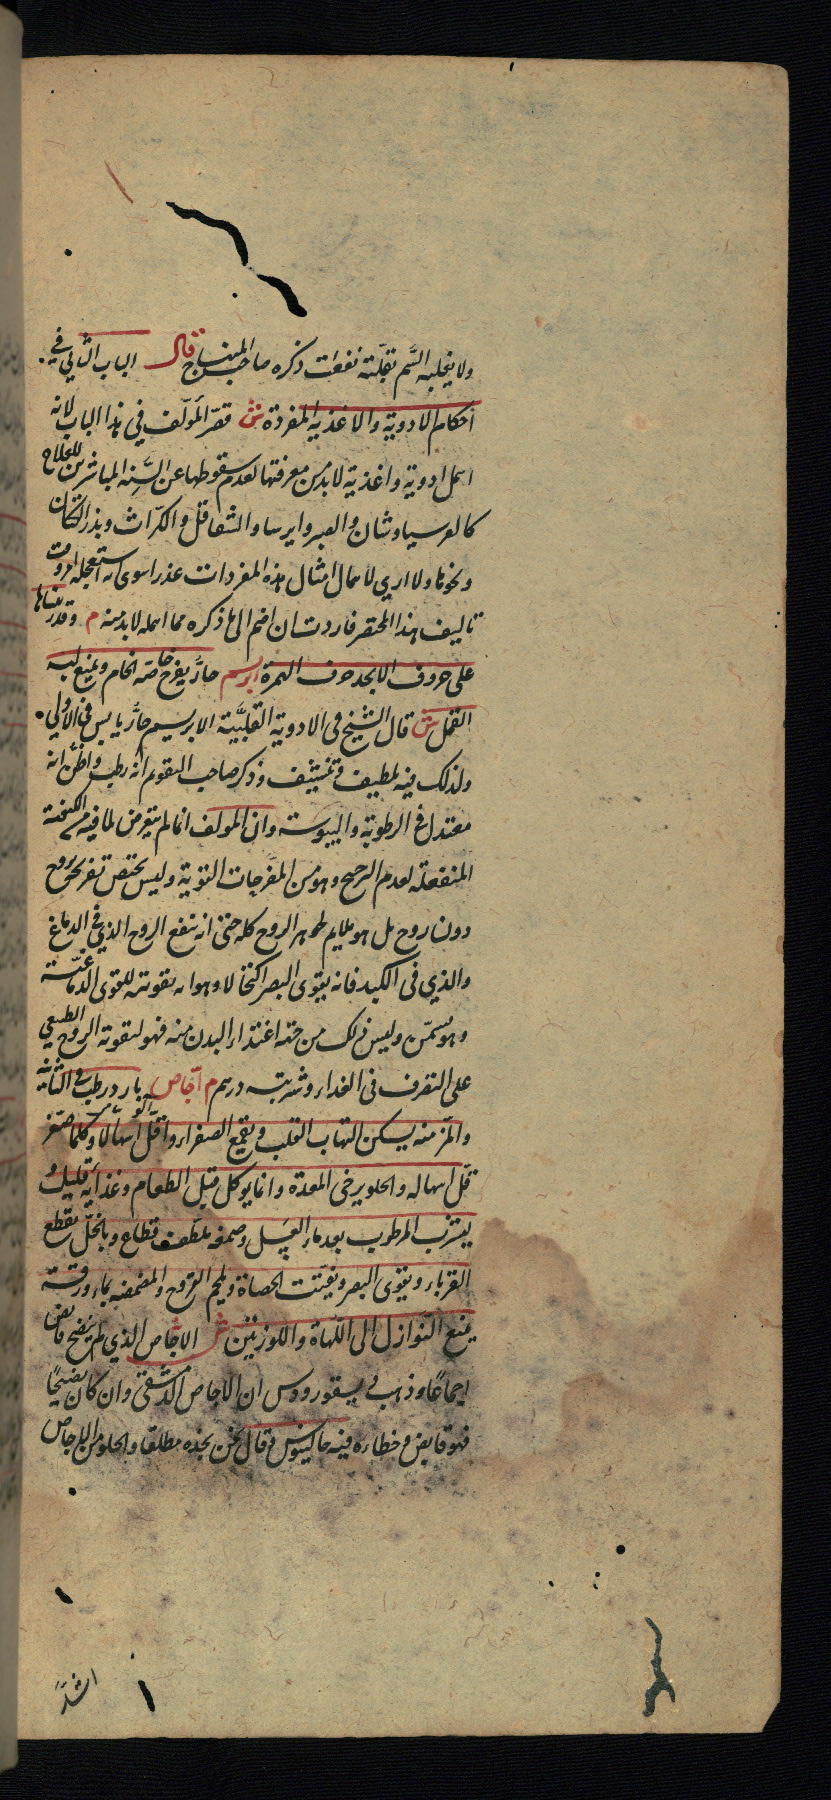 ولا يخلبه السم بقلته نفعت ذكره صاحب المنهاج قال الباب الثاني في
احكام الادوية والاغذية المفردة ش قصر المؤلف في هذا الباب لانه
اهمل ادوية واغذية لابد من معرفتها لعدم سقوطها عن السنة المباشرين للعلاج
كالبرسياوشان والصبر وايرسا والشقاقل والكراث وبذر الكتان
ونحوها ولا ارى لاهمال امثال هذه المفردات عذرا سوى انه استعجله وقت
تاليف هذا المختصر فاردت ان اضم الى ما ذكره مما اهمله لابد منه م وقد رتبناها
على حروف الابجد حرف الهمزة ابريسم حار يفرح خاصة الخام ويمنع لبسه
القمل ش قال الشيخ في الادوية القلبية الابريسم حار يابس في الاولى
ولذلك فيه تلطيف وتنشيف وذكر صاحب التقويم انه رطب واظن انه
معتدل في الرطوبة واليبوسة وان المؤلف انما لم يتعرض لما فيه من الكيفية
المنفعلة لعدم الترجيح وهو من المفرحات القوية وليس يختص تفريحه بروح
دون روح بل هو ملايم لجوهر الروح كله حتى انه ينفع الروح الذي في الدماغ
والذي في الكبد فانه يقوى البصر اكتحالا وهو انه بقوته للقوى الدماغية
وهو يسمن وليس ذلك من جهة اغتذاء البدن منه فهو لتقوية الروح الطبيعي
على التصرف في الغذاء وشربته درهم م اجاص بارد رطب في الثانية
والمز منه يسكن التهاب القلب ويقمع الصفراء واقل اسهالا وكلما صغر
قل اسهاله والحلو يرخى المعدة وانما يوكل قبل الطعام وغذائه قليل و
يشرب المرطوب بعده ماء العسل وصمغه ملطف قطاع وبالخل يقطع
القوباء ويقوى البصر ويفتت الحصاة ويلحم القروح والمضمضة بماء ورقه
يمنع النوازل الى اللهاة واللوزتين ش الاجاص الذي لم ينضج قابض
اجماعا وذهب ديسقوريدوس ان الاجاص الدمشقى وان كان نضيجا
فهو قابض وخطاءه فيه جالينوس وقال نحن نجده مطلقا والحلو من الاجاص
اشد